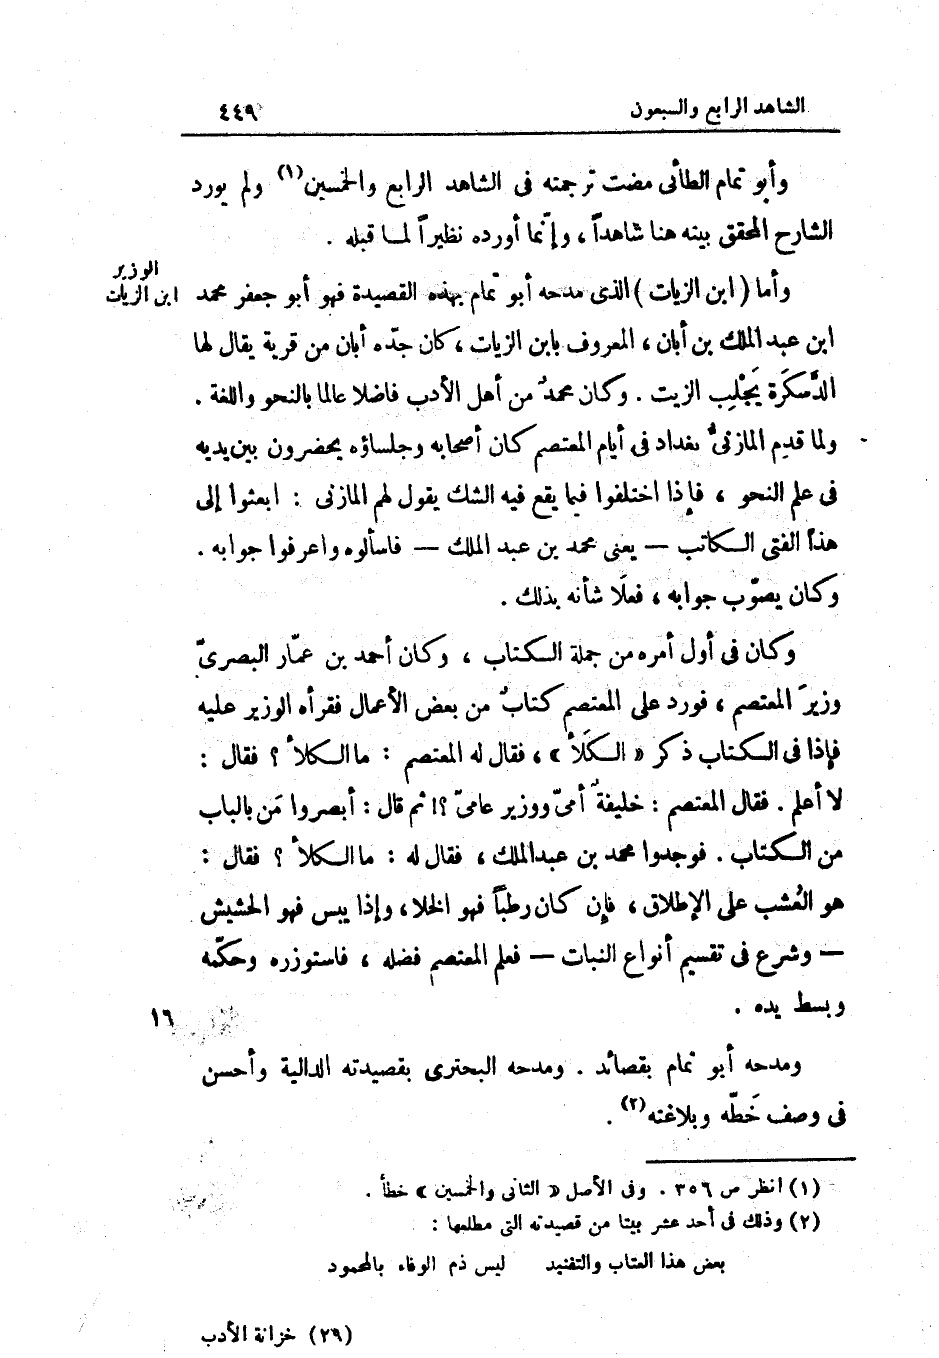 الشاهد الرابع والسبعون ٤٤٩
وأبو تمام الطائى مضت ترجمته فى الشاهد الرابع والخمسين(١) ولم يورد
الشارح المحقق بيته هنا شاهداً ، وإنّما أورده نظيراً لما قبله .
وأما ( ابن الزيات ) الذى مدحه أبو تمّام بهذه القصيدة فهو أبو جعفر محمد
الوزير
ابن الزيات
ابن عبد الملك بن أبان ، المعروف بابن الزيات ، كان جدّه أبان من قرية يقال لها
الدَّسكَرَة يَجْلِب الزيت . وكان محمدٌ من أهل الأدب فاضلا عالما بالنحو واللغة .
ولما قدِم المازنىُّ بغداد فى أيام المعتصم كان أصحابه وجلساؤه يحضرون بين يديه
فى علم النحو ، فإذا اختلفوا فيما يقع فيه الشك يقول لهم المازنى : ابعثوا إلى
هذا الفتى الكاتب — يعنى محمد بن عبد الملك — فاسألوه واعرفوا جوابه .
وكان يصوّب جوابه ، فعلَا شأنه بذلك .
وكان فى أول أمره من جملة الكتاب ، وكان أحمد بن عمّار البصرىّ
وزيرَ المعتصم ، فورد على المعتصم كتابٌ من بعض الأعمال فقرأه الوزير عليه
فإذا فى الكتاب ذكر « الكَلأ » ، فقال له المعتصم : ما الكلأ ؟ فقال :
لا أعلم . فقال المعتصم : خليفةٌ أمىّ ووزير عامىّ ؟! ثم قال : أبصروا مَن بالباب
من الكتاب . فوجدوا محمد بن عبدالملك ، فقال له : ما الكلأ ؟ فقال :
هو العُشب على الإطلاق ، فإن كان رطبًا فهو الخلا ، وإذا يبس فهو الحشيش
— وشرع فى تقسيم أنواع النبات — فعلم المعتصم فضله ، فاستوزره وحكّمه
وبسط يده .
١٦
ومدحه أبو تمام بقصائد . ومدحه البحترى بقصيدته الدالية وأحسن
فى وصف خَطّه وبلاغته(٢) .
(١) انظر ص ٣٥٦ . وفى الأصل « الثانى والخمسين » خطأ .
(٢) وذلك فى أحد عشر بيتا من قصيدته التى مطلعها :
بعض هذا العتاب والتفنيد ليس ذم الوفاء بالمحمود
(٢٩) خزانة الأدب